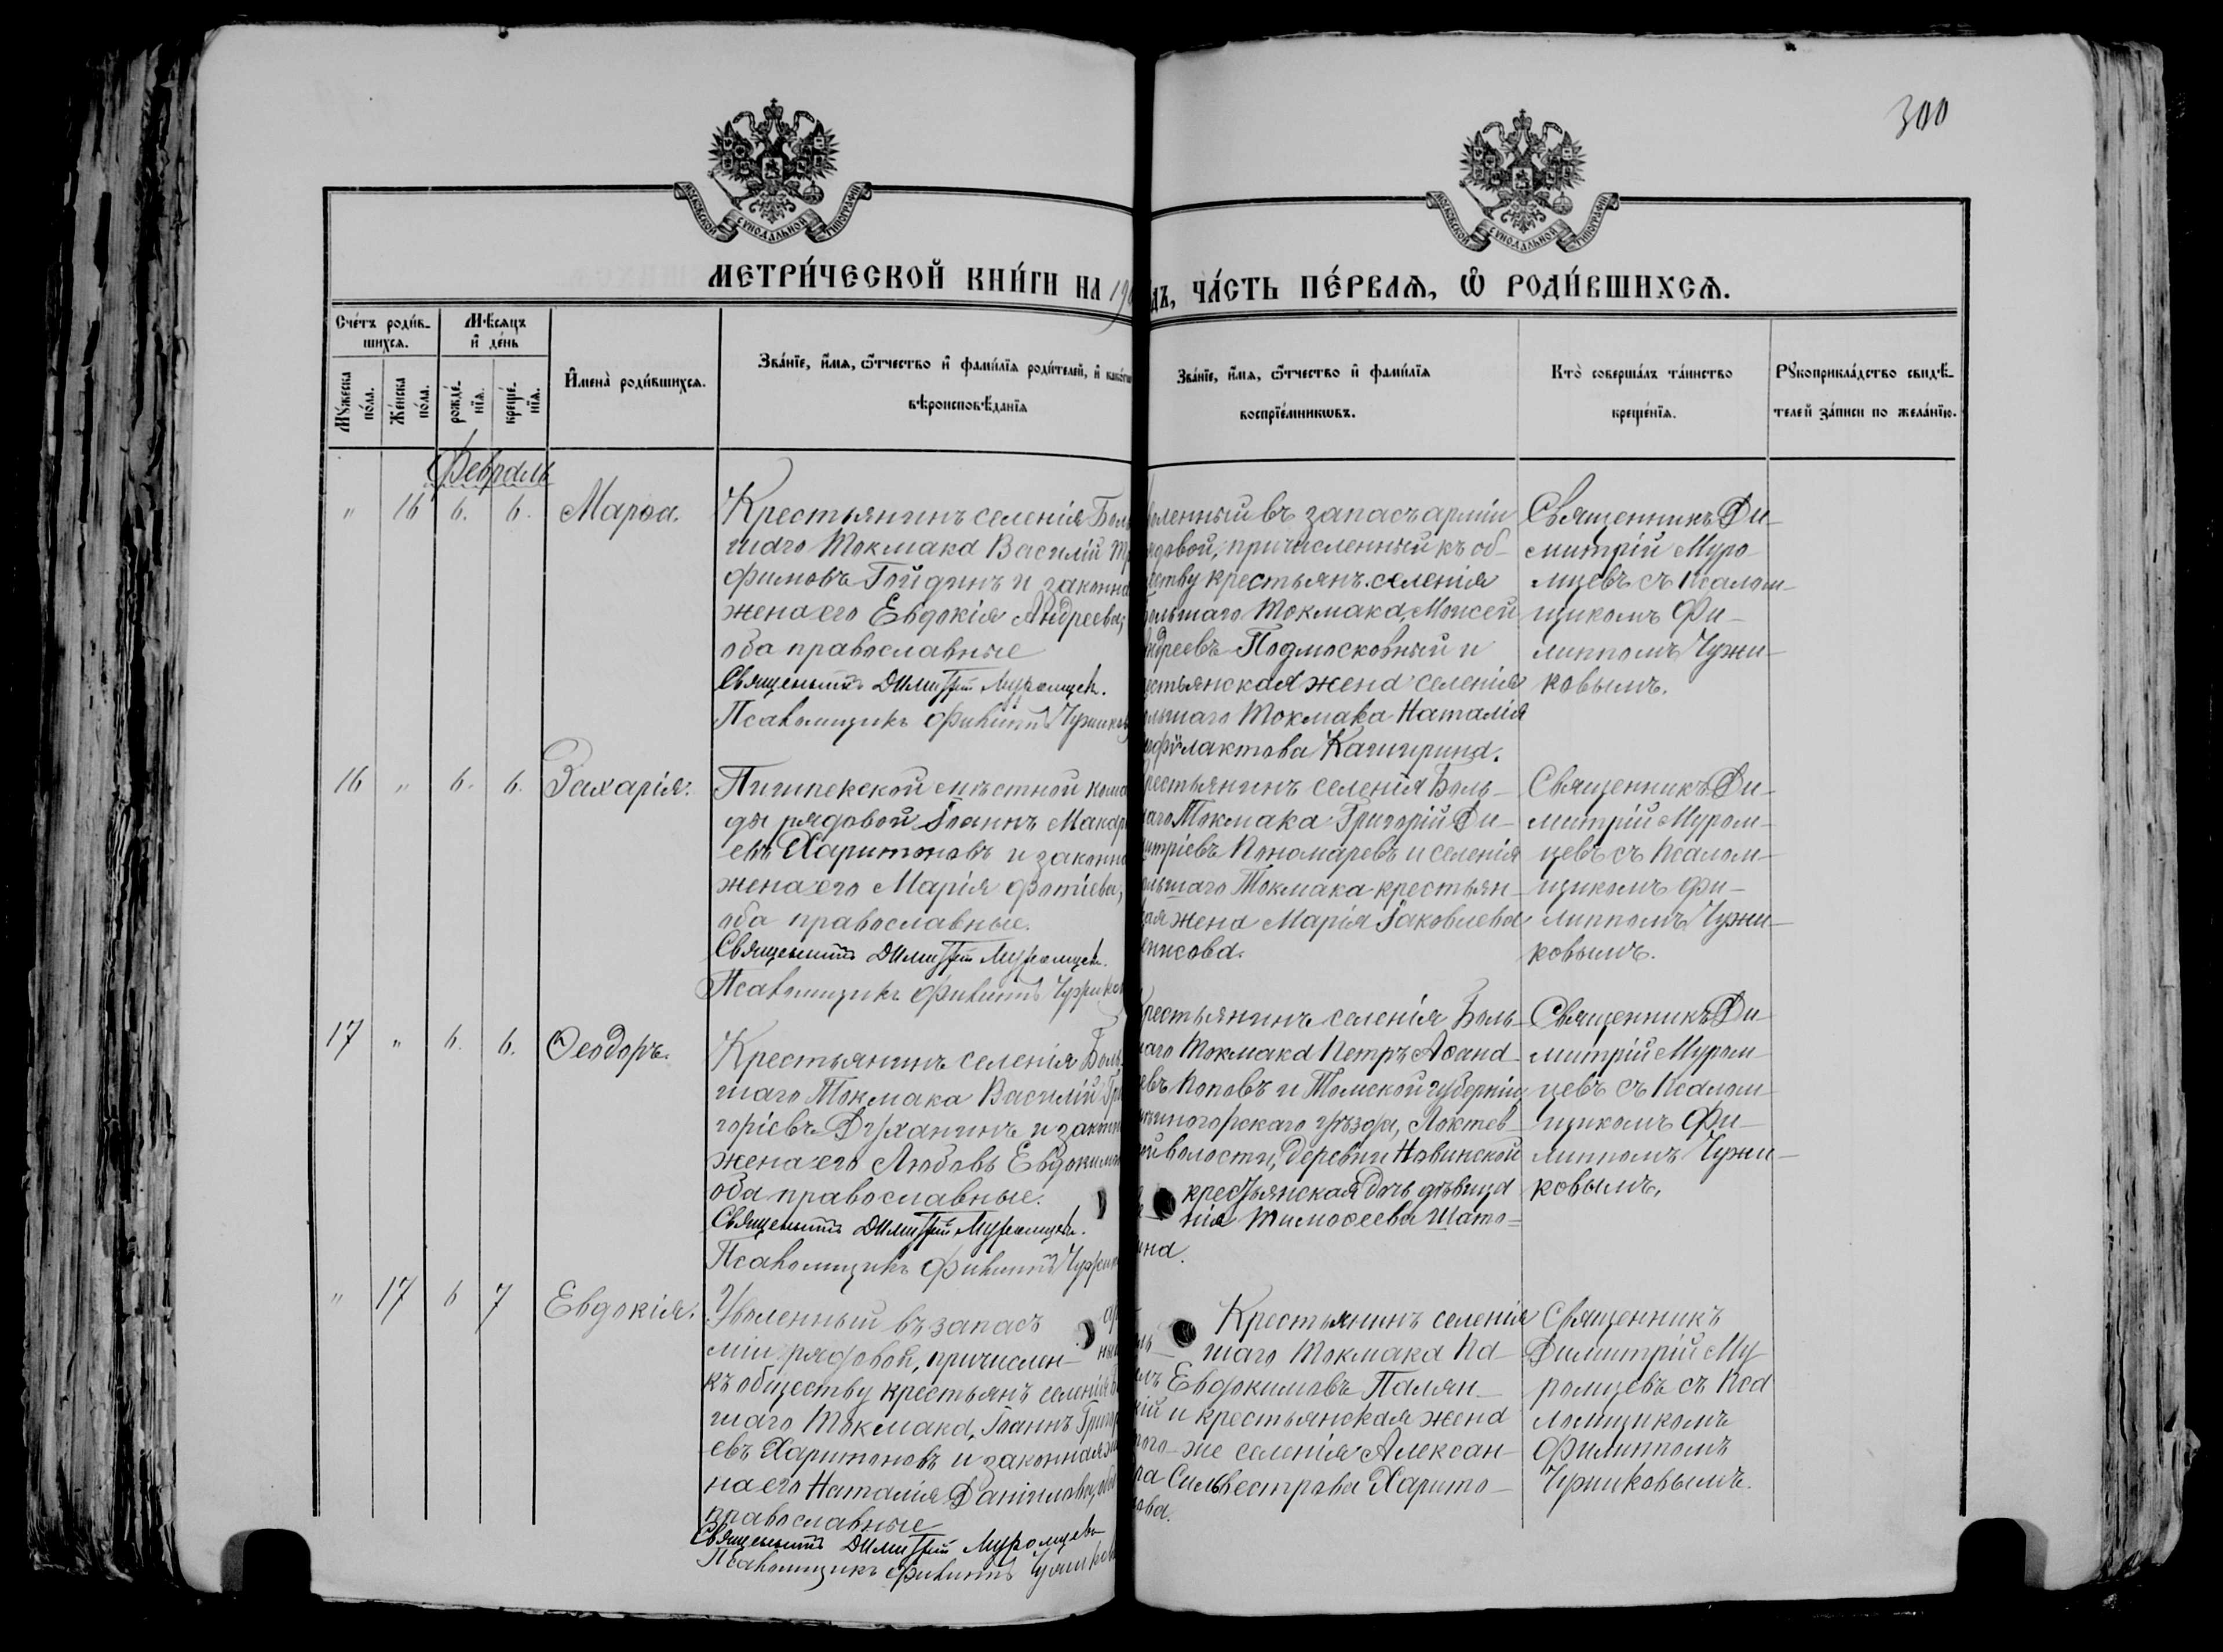 300
МОСКОВСКОЙ СѴНОДАЛЬНОЙ ТИПОГРАФІИ
МОСКОВСКОЙ СѴНОДАЛЬНОЙ ТИПОГРАФІИ
МЕТРИ́ЧЕСКОЙ КНИ́ГИ НА 19
дъ, ЧА́СТЬ ПЕ́РВАѦ, Ѡ РОДИ́ВШИХСѦ.
Сче́тъ роди́в-
шихсѧ.
Мѣ́сяцъ
и҆ де́нь
Мꙋ́жеска
по́ла.
Же́нска
по́ла.
рожде́-
нїѧ.
креще́-
нїѧ.
И҆мена̀ роди́вшихсѧ.
Зва́нїе, и҆́мѧ, ѻ҆́тчество и҆ фами́лїѧ роди́телей, и҆
вѣроисповѣ́данїѧ
Зва́нїе, и҆́мѧ, ѻ҆́тчество и҆ фами́лїѧ
воспрїе́мникѡвъ.
Кто̀ соверша́лъ та́инство
креще́нїѧ.
Рꙋкоприкла́дство свидѣ́-
телей за́писи по жела́нїю.
Февраль
" 16 6. 6. Марѳа.
Крестьянинъ селенія Боль
шаго Токмака Василій Тр
фимовъ Гойдинъ и законна
жена его Евдокія Андреева,
оба православные
Священникъ Димитрій Муромцевъ.
Псаломщикъ Филиппъ Чужиков
воленный въ запасъ арміи
ядовой, причисленный къ об-
еству крестьянъ селенія
Большаго Токмака, Моисей
Андреевъ Подмосковный и
естьянская жена селенія
ольшаго Токмака Наталія
еофилактова Кашрина.
Священникъ Ди-
митрій Муро-
мцевъ съ псалом-
щикомъ Фи-
липпомъ Чужи-
ковымъ.
16 " 6. 6. Захарія.
Пишпекской мѣстной кома
ды рядовой Іоаннъ Макарі
евъ Харитоновъ и законна
жена его Марія Фотіева,
оба православные.
Священникъ Димитрій Муромцевъ.
Псаломщикъ Филиппъ Чужиков
рестьянинъ селенія Боль-
шаго Токмака Григорій Ди-
митріевъ Пономаревъ и селенія
ольшаго Токмака крестьян-
кая жена Марія Іаковлева
нисова.
Священникъ Ди-
митрій Муром-
цевъ съ псалом-
щикомъ Фи-
липпомъ Чужи-
ковымъ.
17 " 6. 6. Ѳеодоръ.
Крестьянинъ селенія Боль
шаго Токмака Василій Гри
горіевъ Духанинъ и законн
жена его Любовь Евдокимо
оба православные.
Священникъ Димитрій Муромцевъ.
Псаломщикъ Филиппъ Чужик
рестьянинъ селенія Боль-
шаго Токмака Петръ Аѳана-
евъ Поповъ и Томской губерніи,
ѣиногорскаго уѣзда, Локтев-
ой волости, деревни Новинской
крестьянская дочь дѣвица
нія Тимоѳеева Шато-
ина.
Священникъ Ди-
митрій Муром-
цевъ съ псалом-
щикомъ Фи-
липпомъ Чужи-
ковымъ.
" 17 6 7 Евдокія.
Уволенный въ запасъ ар
міи рядовой, причислен- ный
къ обществу крестьянъ селенія Б
шаго Токмака, Іоаннъ Григор
евъ Харитоновъ и законная же
на его Наталія Даніилова, оба
православные
Священникъ Димитрій Муромцевъ
Псаломщикъ Филиппъ Чужиков
Крестьянинъ селенія
шаго Токмака Па-
елъ Евдокимовъ Полян-
кій и крестьянская жена
того-же селенія Алексан-
ра Сильвестрова Харито-
ова.
Священникъ
Димитрій Му-
ромцевъ съ пса
ломщикомъ
Филиппомъ
Чужиковымъ.